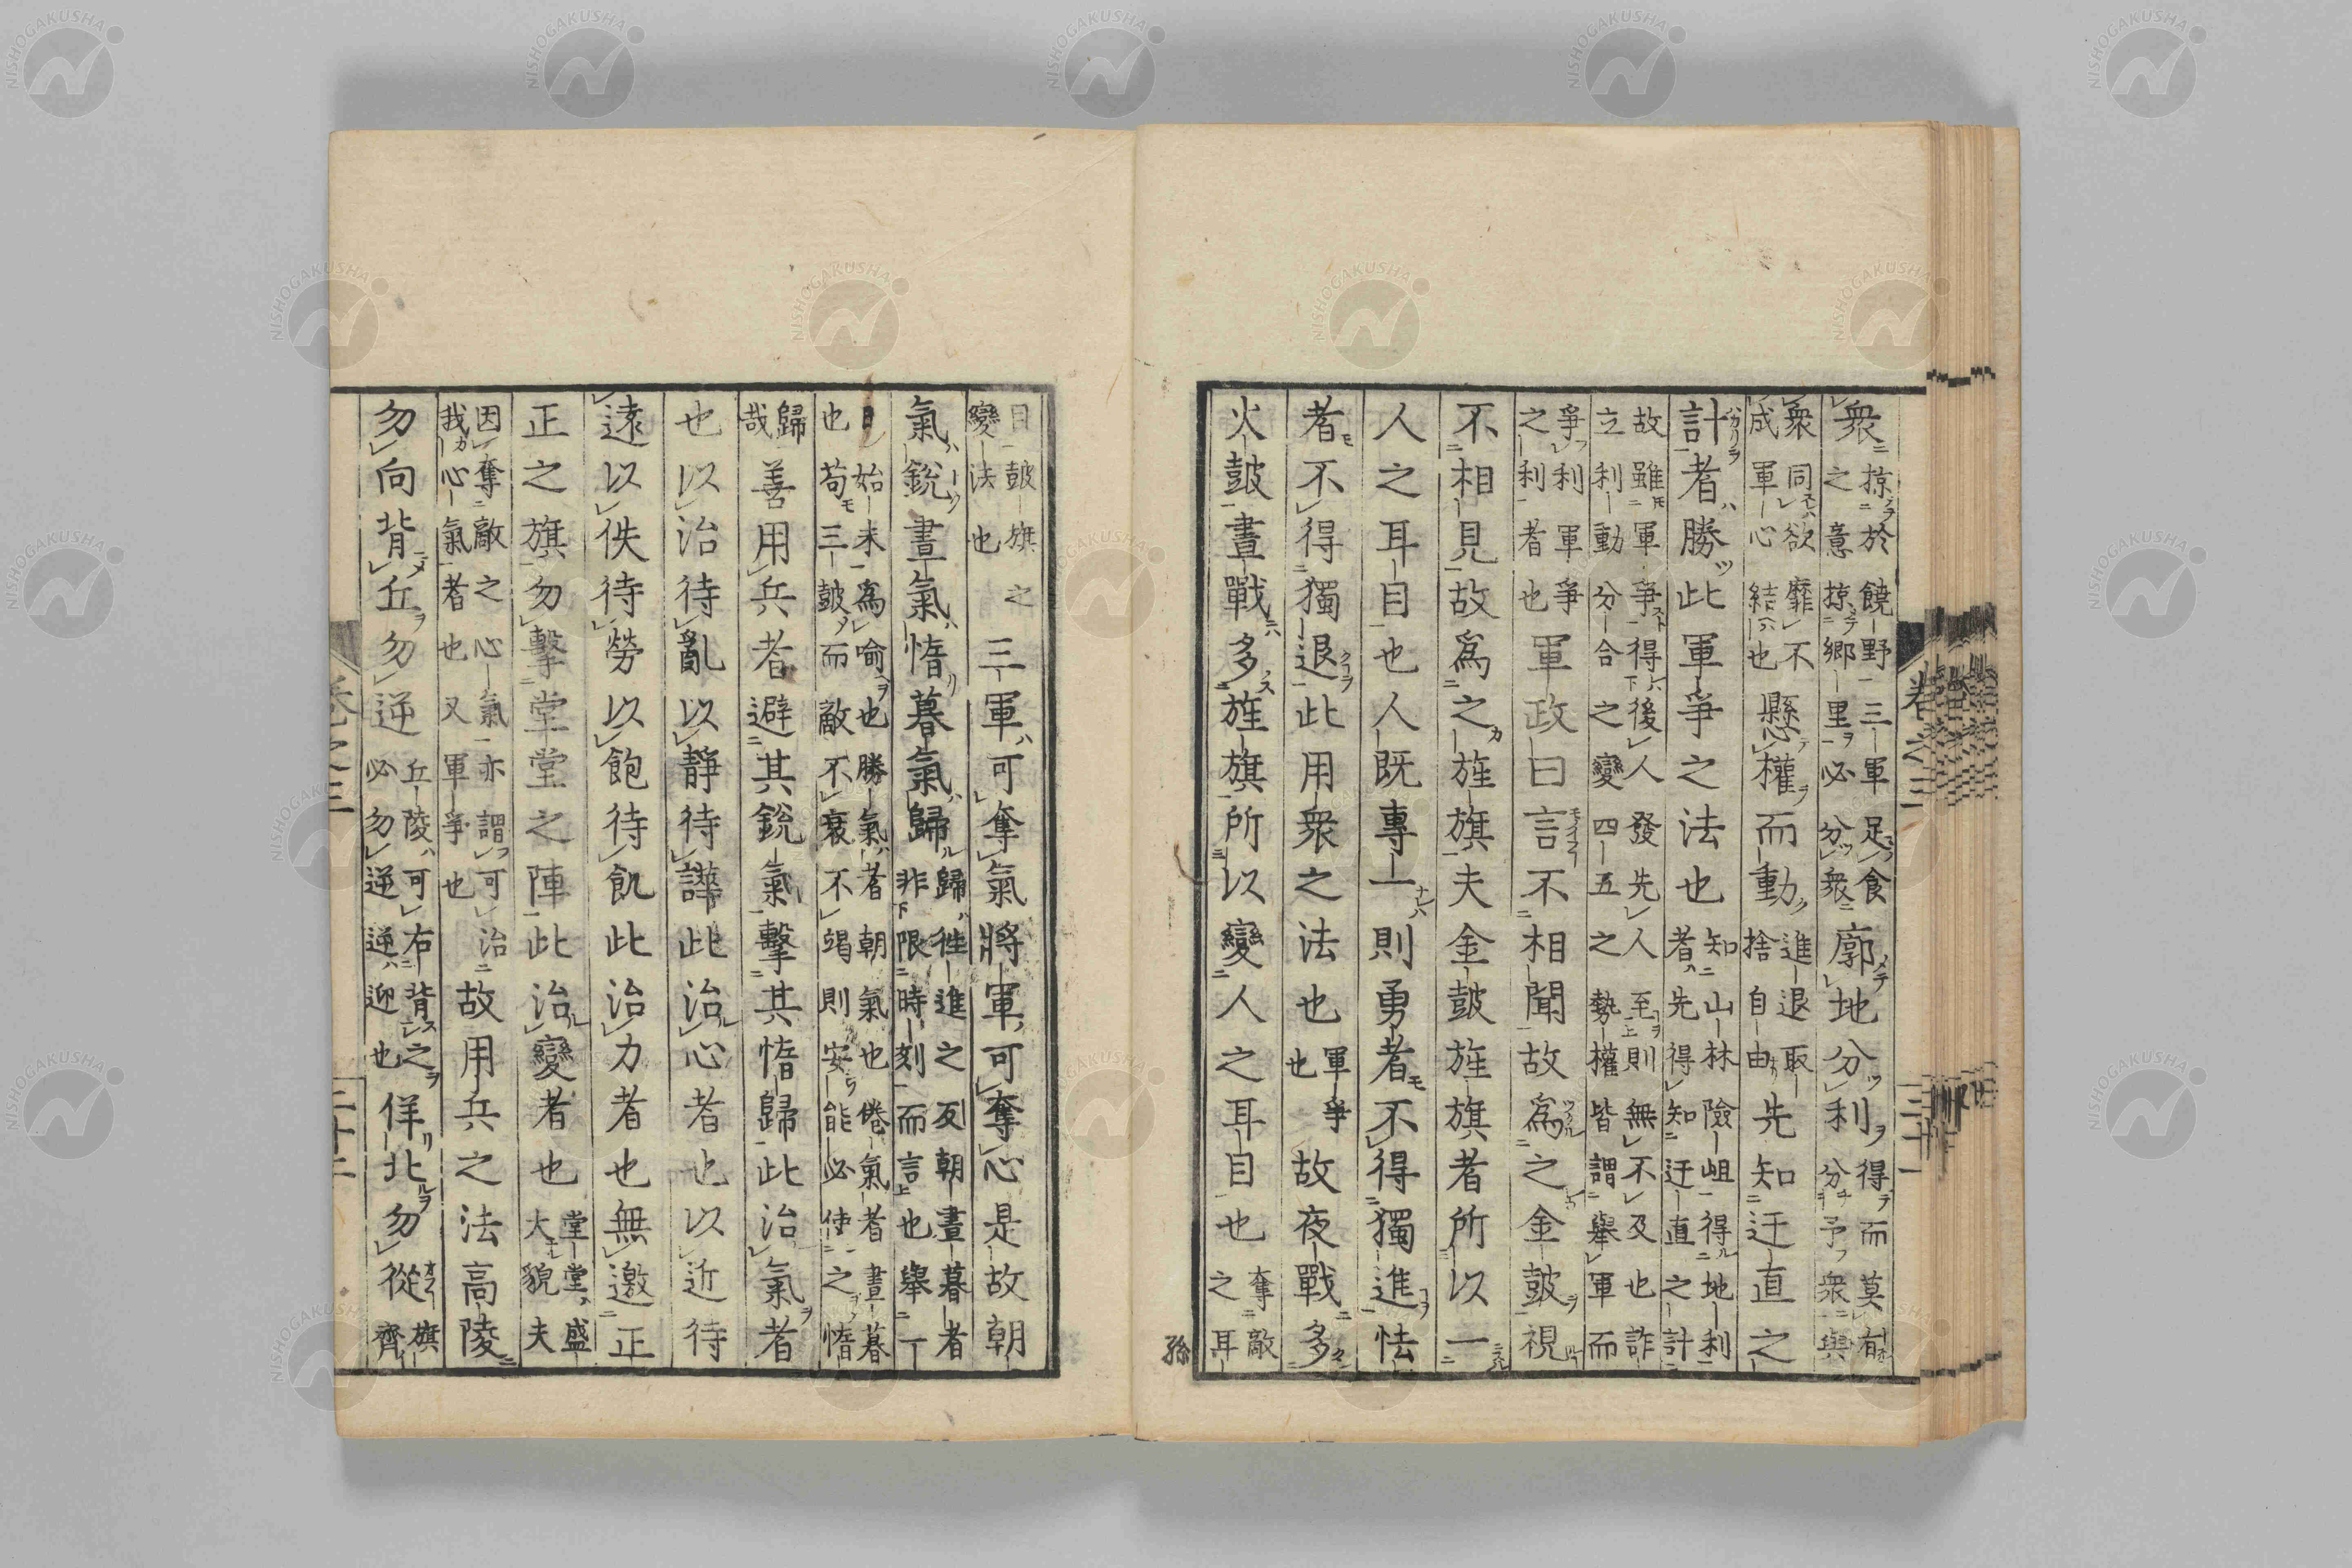 衆掠於饒野三軍足食
之意掠郷里必分衆
廓地分利得而莫有
分予衆與
衆同欲靡不
成軍心結也
懸權而動進退取
捨自由
先知迂直之
計者勝此軍爭之法也知山林險岨得地利
者先得知迂直之計
故雖軍爭得後人發先人至則無不及也詐
立利動分合之變四五之勢權皆謂舉軍而
爭利軍爭
之利者也
軍政曰言不相聞故爲之金鼓視
不相見故爲之旌旗夫金鼓旌旗者所以一
人之耳目也人既專一則勇者不得獨進怯
者不得獨退此用衆之法也軍爭
也
故夜戰多
火鼓晝戰多旌旗所以變人之耳目也奪敵
之耳
孫
卷之三
三十一
目鼓旗之
變法也
三軍可奪氣將軍可奪心是故朝
氣銳晝氣惰暮氣歸歸往進之反朝晝暮者
非限時刻而言也舉一
日始末爲喻也勝氣者朝氣也倦氣者晝暮
也苟三鼓而敵不衰不竭則安能必使之惰
歸
哉
善用兵者避其銳氣擊其惰歸此治氣者
也以治待亂以靜待譁此治心者也以近待
遠以佚待勞以飽待飢此治力者也無邀正
正之旗勿擊堂堂之陣此治變者也堂堂盛
大貌夫
因奪敵之心氣亦謂可治
我心氣者也又軍爭也
故用兵之法高陵
勿向背丘勿逆丘陵可右背之
必勿逆逆迎也
佯北勿從旗
齊
卷之三
三十二
NISHOGAKUSHA